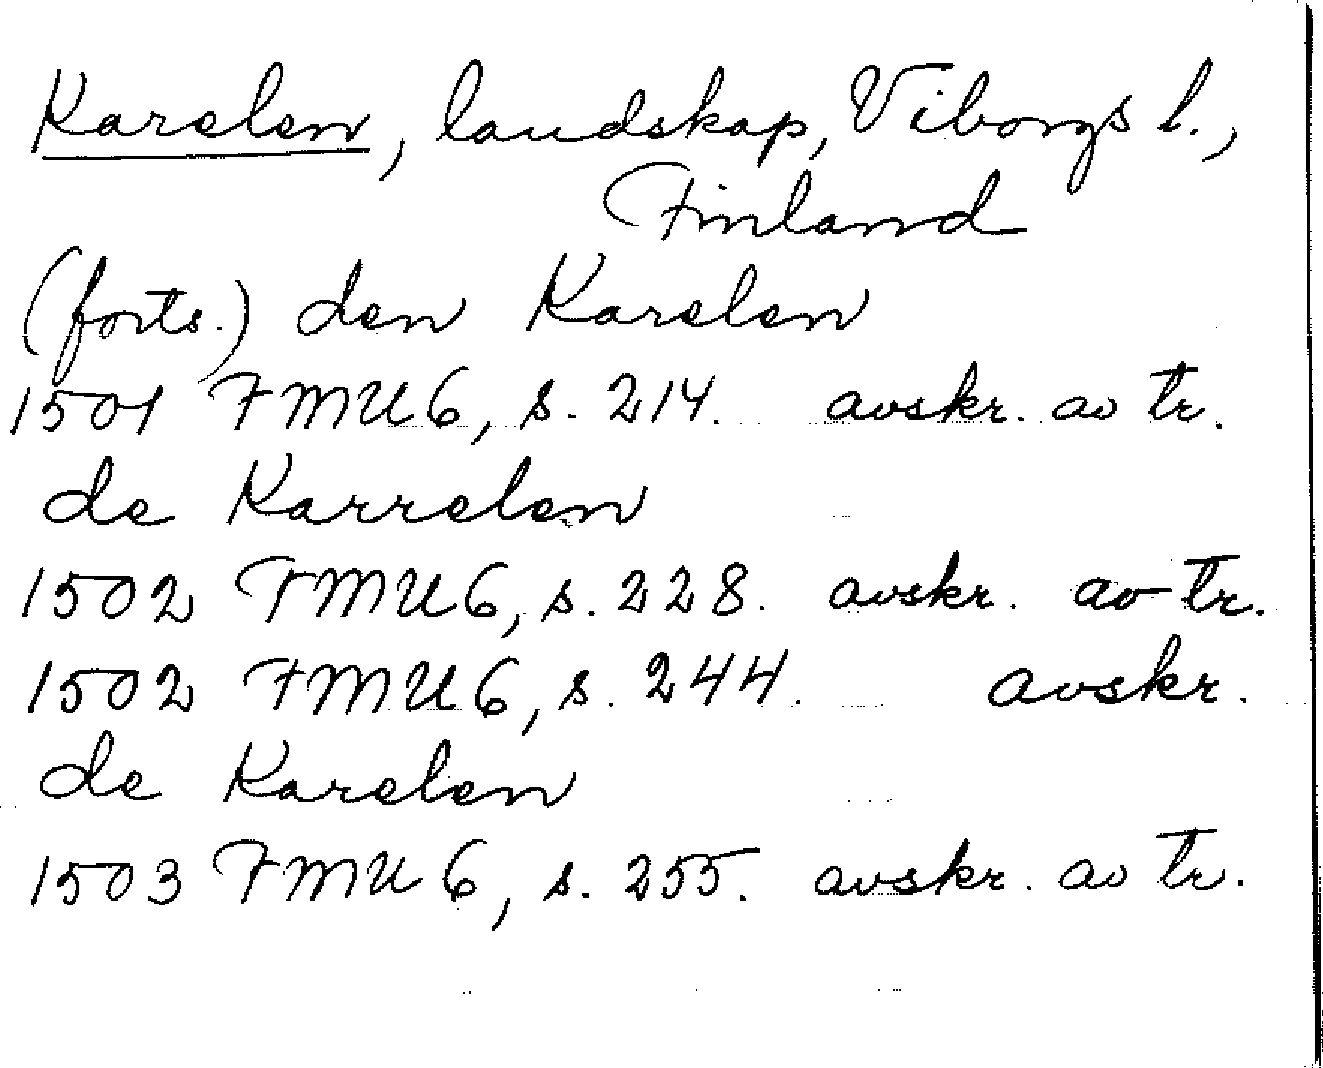 Karelen, landskap, Viborgs l.,
Finland
(forts.) den Karelen
1501 FMU 6, s. 214. avskr. av tr.
de Karrelen
1502 FMU 6, s. 228. avskr. av tr.
1502 FMU 6, s. 244. avskr.
de Karelen
1503 FMU 6, s. 255. avskr. av tr.